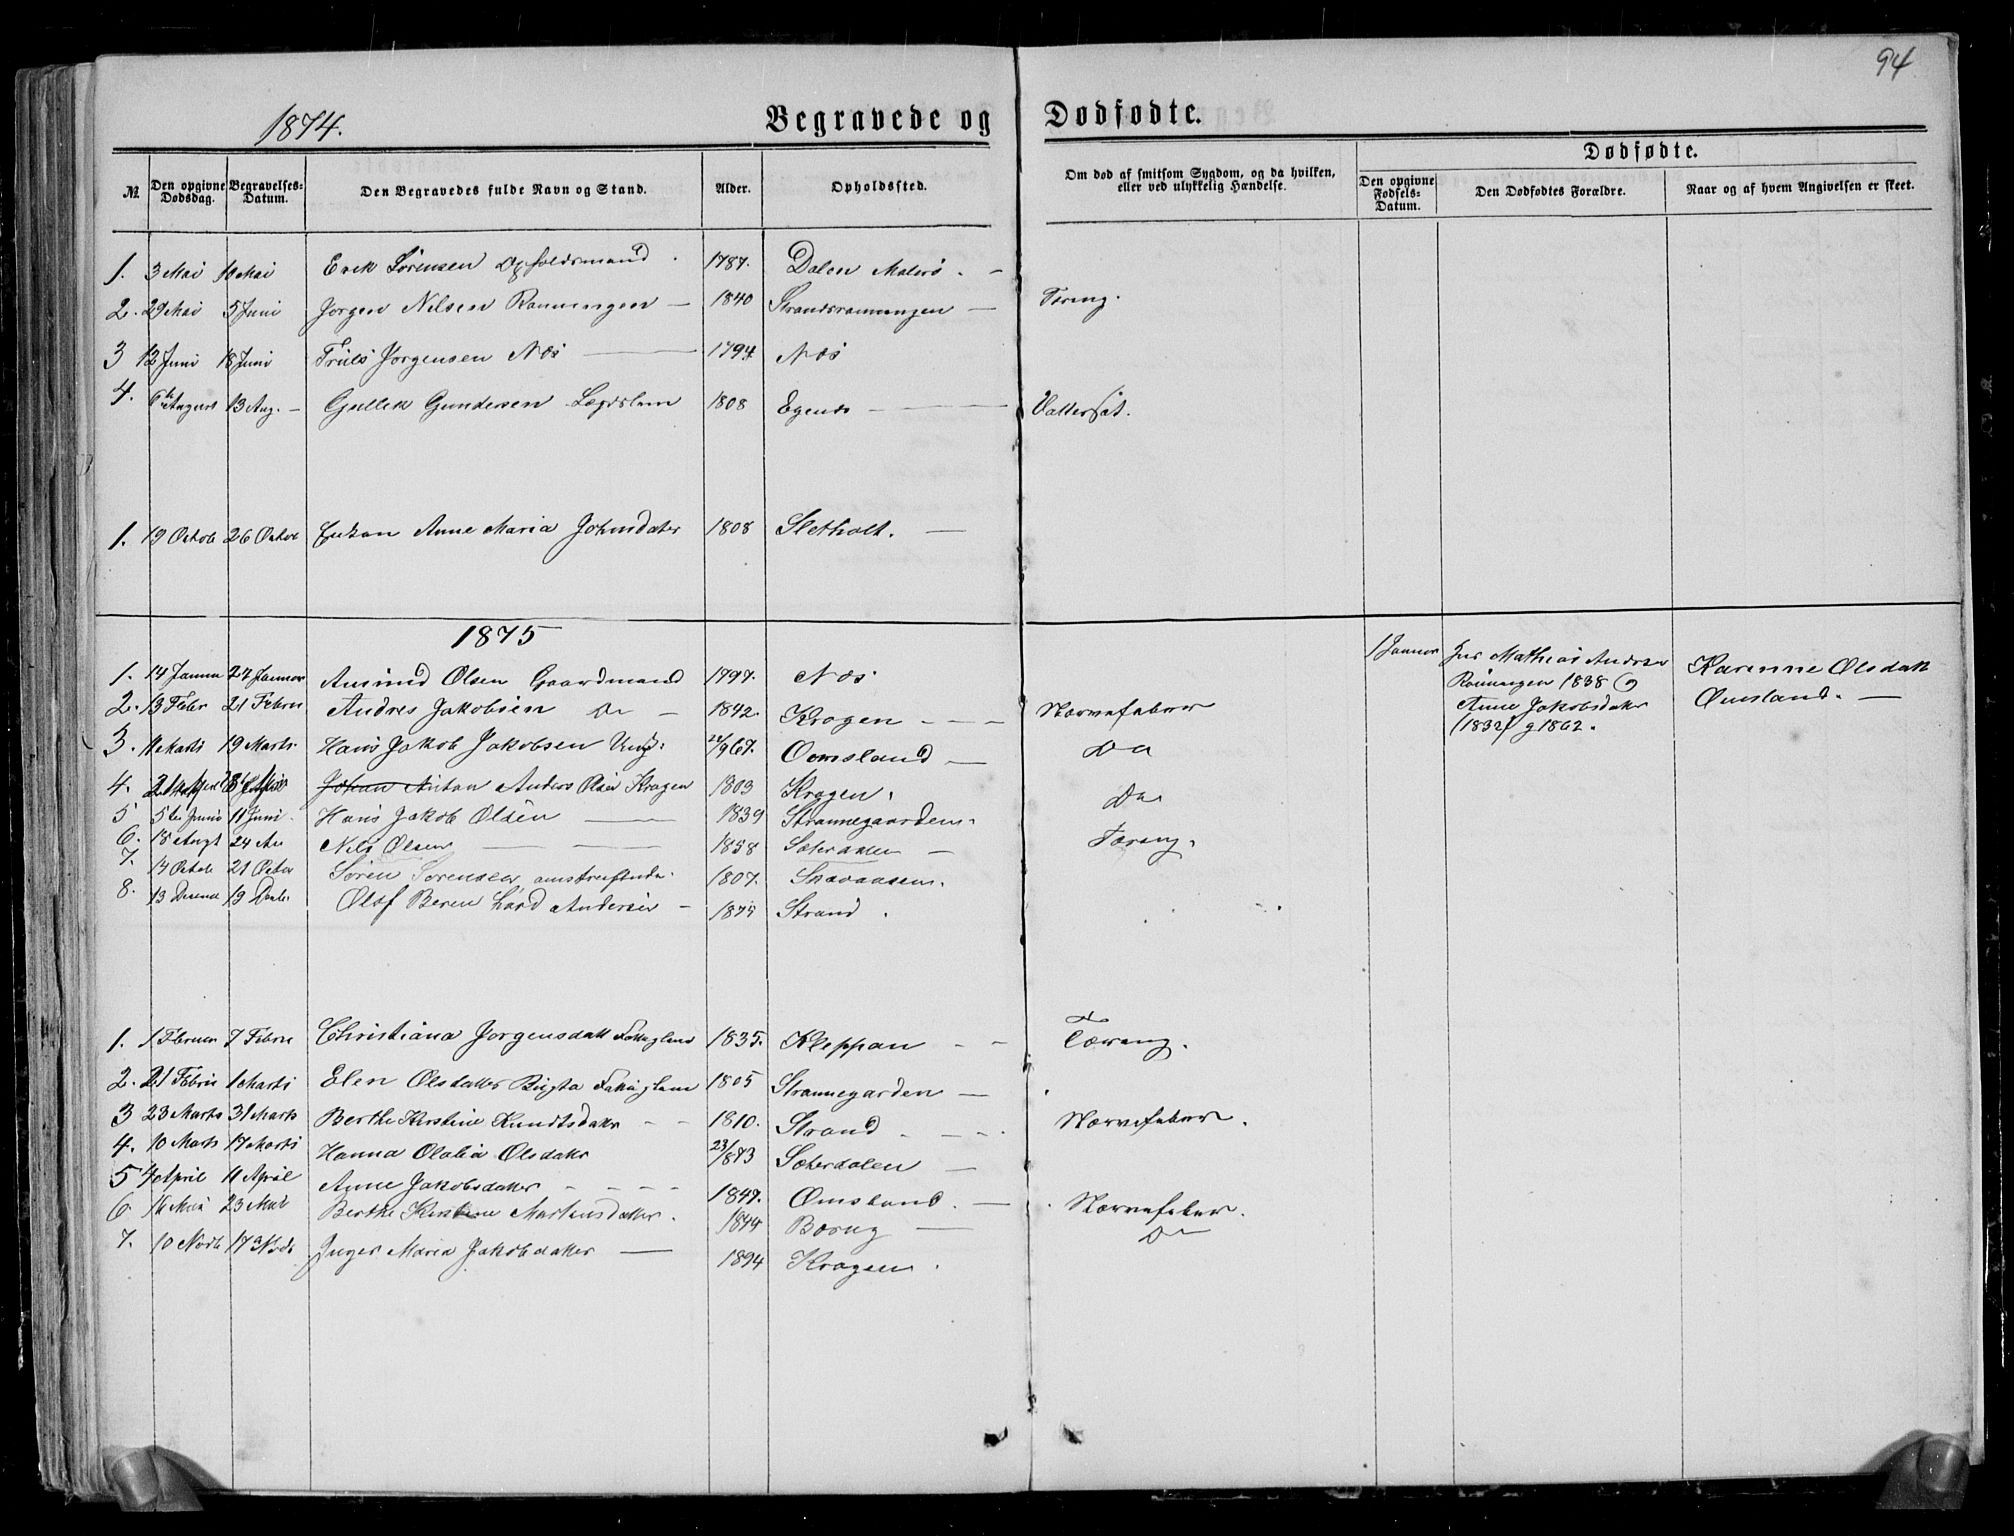 94
1874.
Begravede og Dødfødte.
Dødfødte.
№. Den opgivne Dødsdag. Begravelses-Datum. Den Begravedes fulde Navn og Stand. Alder. Opholdssted. Om død af smitsom Sygdom, og da hvilken, eller ved ulykkelig Hændelse. Den opgivne Fødsels-Datum. Den Dødfødtes Forældre. Naar og af hvem Angivelsen er skeet.
1. 3 Mai 10 Mai Erik Sørensen Opholdsmand 1787. Dalen
2. 29 Mai 5 Juni Jørgen Nilsen Rønningen — 1840 — Tæring.
3 12 Juni 18 Juni Truls Jørgensen Næs — 1794 Næs
4. 6te August 13 Aug. — Gullik Gundersen Lægdslem 1808 Egends — Vattersot.
1. 19 Octob 26 Octob Enken Anne Maria Johnsdater 1808 Sletholt. —
1875
1. 14 Januar 24 Januar Amund Olsen Gaardmand 1797. Næs
1 Januar Mathias Andrsen Rønningen 1838 og Anne Jakobsdater (1832) g 1862. Karenne Olsdatt Omsland. —
2. 13 Febr 21 Febru Andres Jakobsen Do — 1842. Kragen — — — Nervefeber
3. 11 Marts 19 Marts Hans Jakob Jakobsen Ungk: Oomsland — Do
4. Johan Anton Anders Olsen Kragen 1803 Kragen. Do
5 5te Junio 11 Juni. Hans Jakob Olsen — 1839 Strannegaarden. Tæring.
6. 18 Augt 24 Au Nils Olsen — — 1858 Sæterdalen —
7. 14 Octob 21 Octbr Søren Sørensen omstreifende. 1807.
8. 13 Decemb 19 Decbr. Olaf Beren Lard Andersen — 1875 Strand.
1. 1 Februar 7 Febru Christiana Jørgensdatt Fattiglem 1835. Kleppan — — Tæring.
2. 21 Febru 1 Marts Elen Olsdatter Bugta Fattiglem 1805 Strannegarden —
3 23 Marts 31 Marts Berthe Kirstine Knudtsdatr — — 1810. Strand — — — Nervefeber.
4. 10 Marts 17 Marts Hanna Olalia Olsdatr 23/873 Sæterdalen —
5 4 April 11 April Anne Jakobsdatter — — — — 1847. Omsland. — Nervefeber.
6. 16 Mai 23 Mai Berthe Kirstine Martinsdatter. 1844 — Do
7. 10 Novbr 17 Novbr Inger Maria Jakobsdatter — 1894 Kragen.